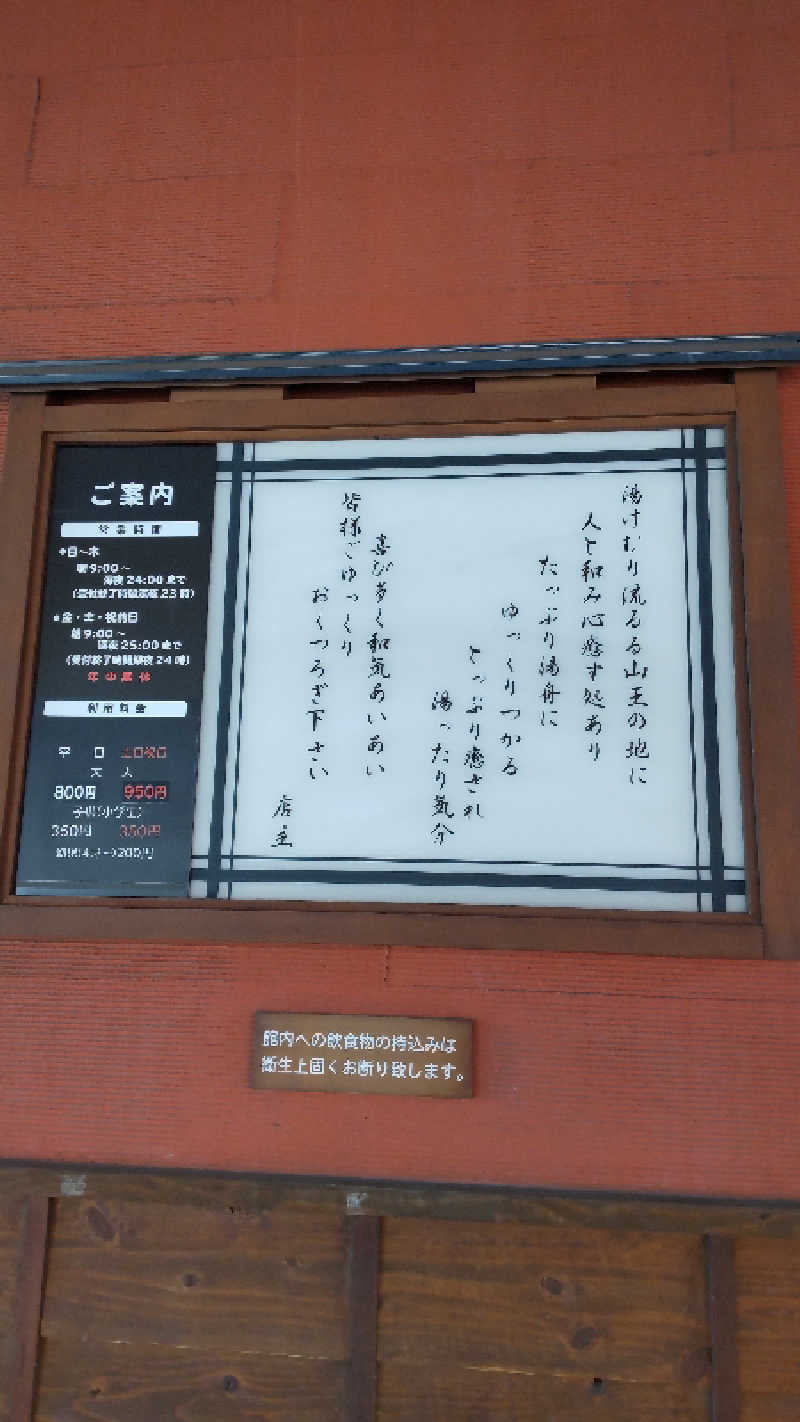 ご案内
営業時間
◆日～木
朝9:00～
深夜24:00まで
(受付終了時間深夜23時)
◆金・土・祝前日
朝9:00～
深夜25:00まで
(受付終了時間深夜24時)
年中無休
御利用料金
平日 土日祝日
大人
800円 950円
子供(小学生)
350円 350円
湯けむり流るる山王の地に
人と和み心癒す処あり
たっぷり湯舟に
ゆっくりつかる
とっぷり癒され
湯ったり気分
喜び多く和気あいあい
皆様ごゆっくり
おくつろぎ下さい
店主
館内への飲食物の持込みは
衛生上固くお断り致します。